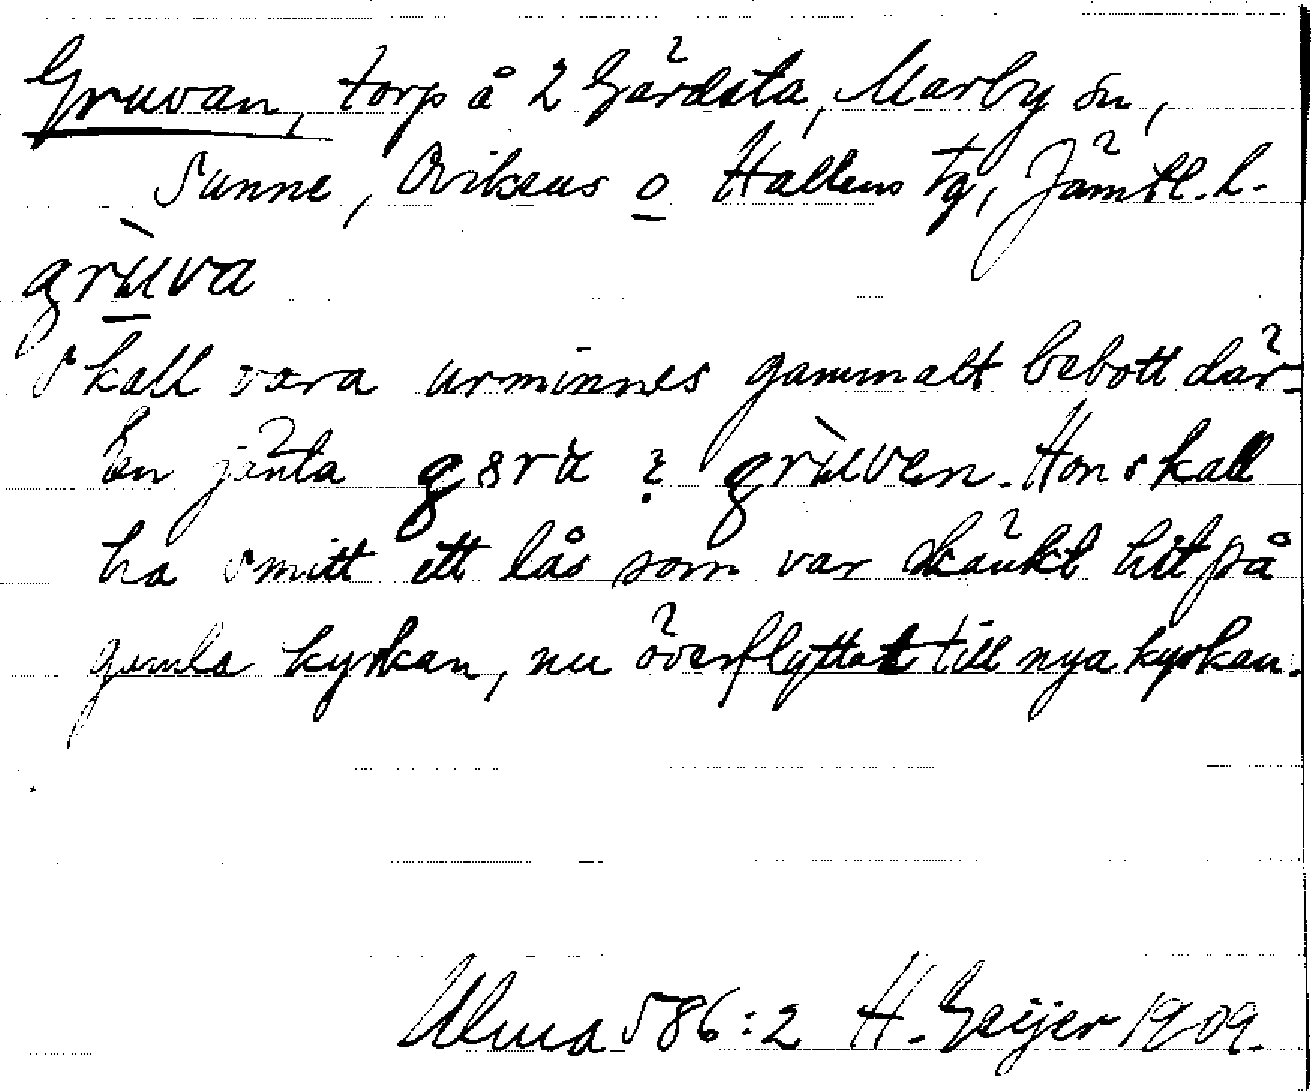 Gruvan, torp å 2 Gärdsta, Marby sn,
Sunne, Ovikens o Hallens tg, Jämtl. l.
grùva
Skall vara urminnes gammalt bebott där-
En jänta gərα ? grùven. Hon skall
ha smitt ett lås som var skänkt hit på
gamla kyrkan, nu överflyttat till nya kyrkan.
Ulma 586:2 H. Geijer 1909.